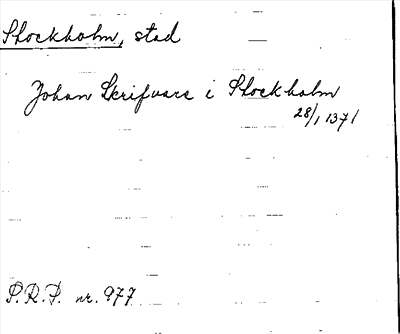 Stockholm, stad
Johan Skrifvare i Stockholm
28/1 1371
P.R.P. nr. 977